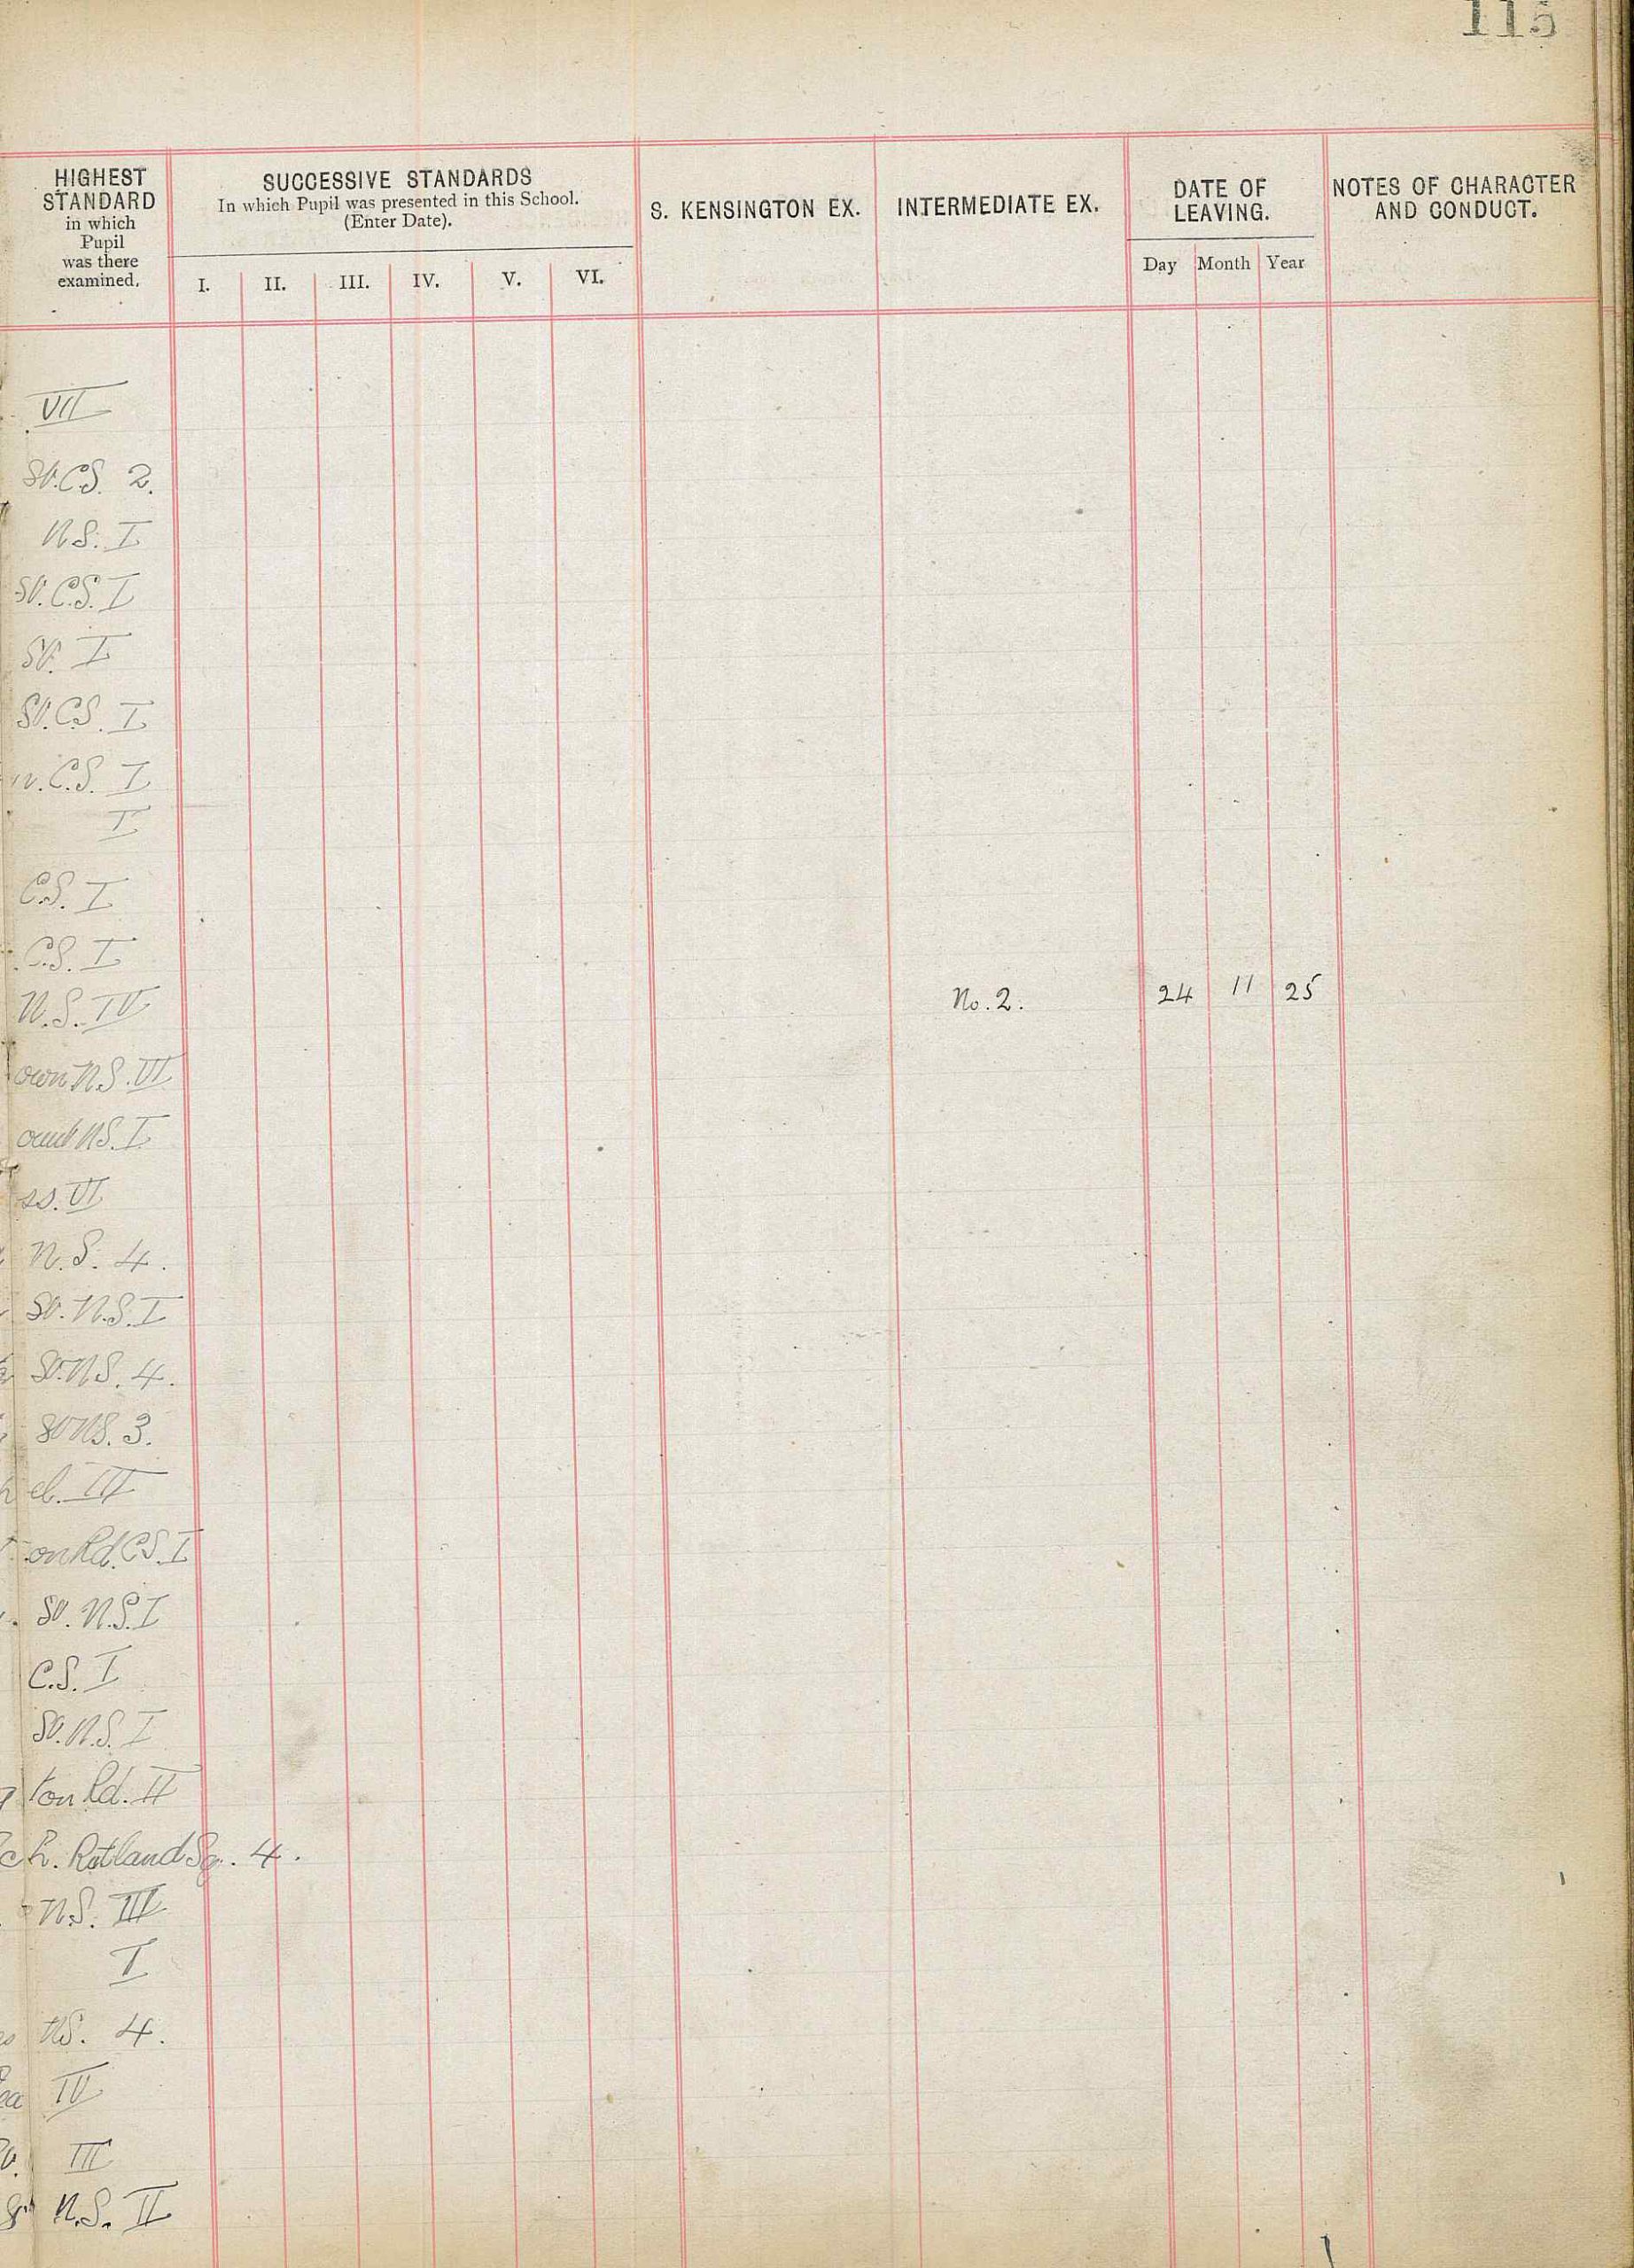 115
HIGHEST STANDARD in which Pupil was there examined.
SUCCESSIVE STANDARDS
In which Pupil was presented in this School.
(Enter Date).
I. II. III. IV. V. VI.
S. KENSINGTON EX.
INTERMEDIATE EX.
DATE OF LEAVING.
Day Month Year
NOTES OF CHARACTER AND CONDUCT.
VII
St.C.S. 2.
N.S. I
St. C.S. I
St. I
St. C.S. I
C.S. I
I
C.S. I
C.S. I
N.S. IV No. 2. 24 11 25
own N.S. VI
N.S. I
ss. VI
N.S. 4.
St. N.S. I
St. N.S. 4.
St N.S. 3.
el. III
on Rd. C.S. I
St. N.S. I
C.S. I
St. N.S. I
ton Rd. II
ch. Rutland Sq. 4.
N.S. III
I
N.S. 4.
IV
III
N.S. II